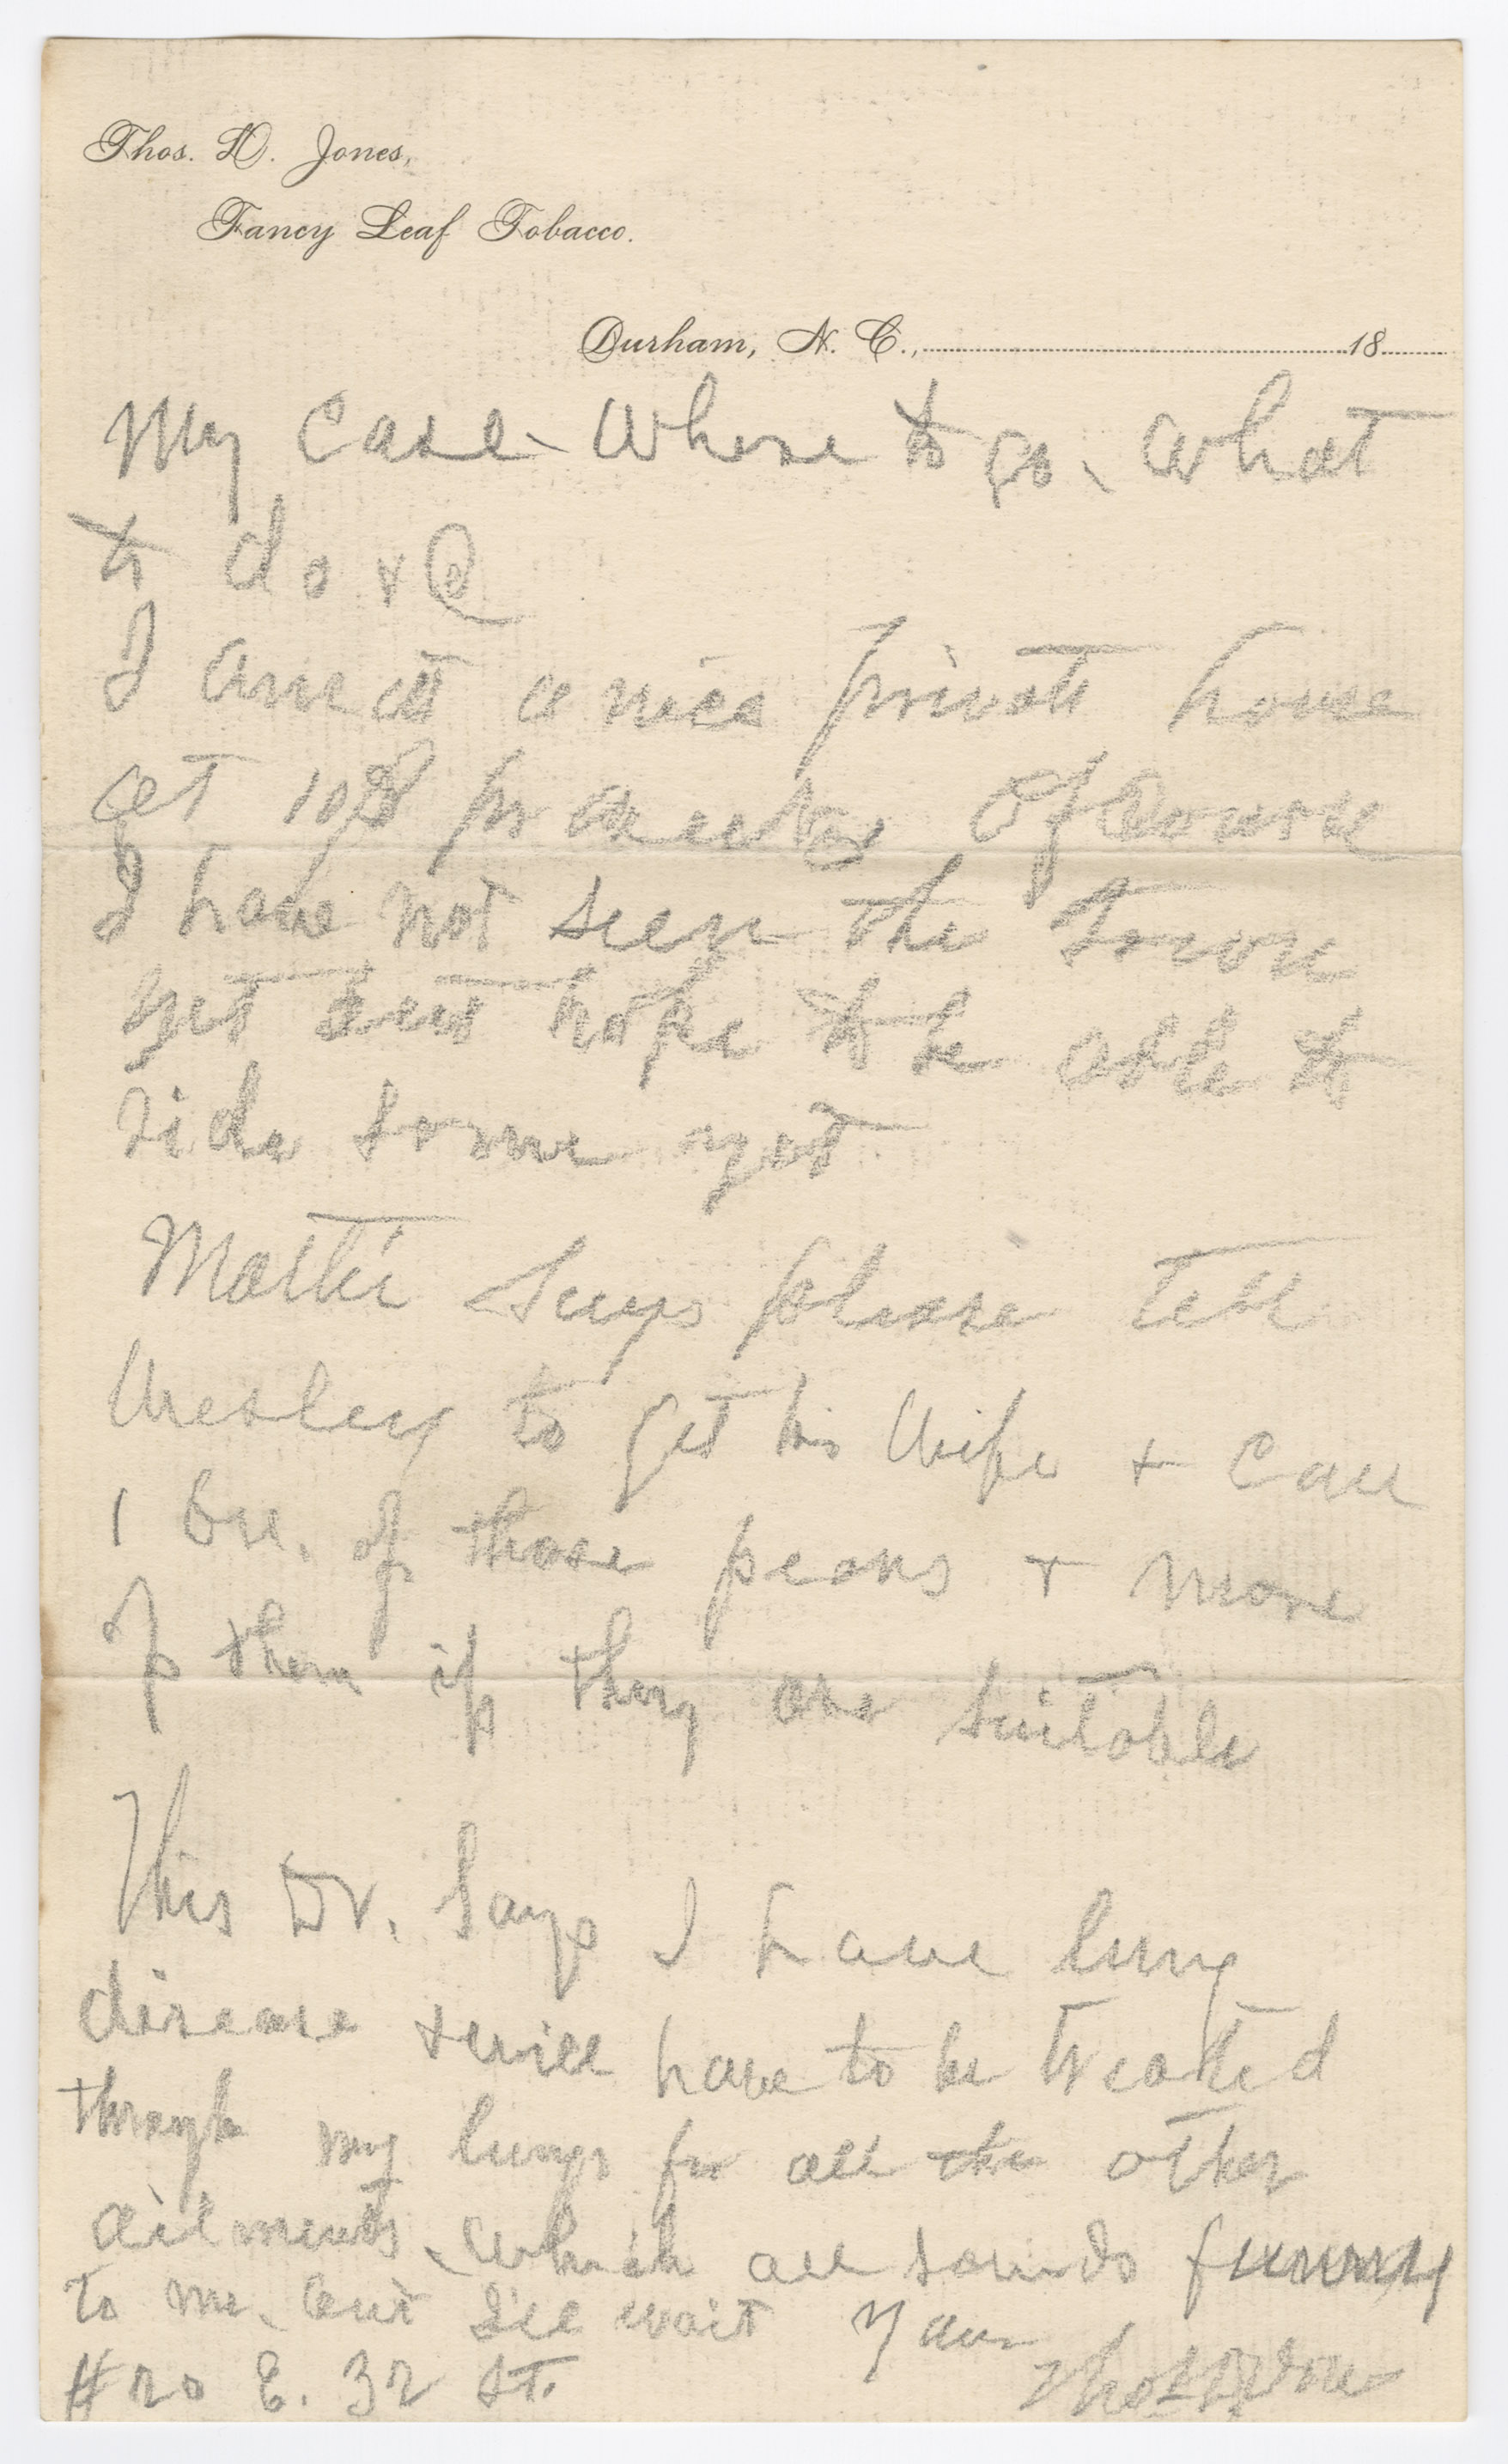 Thos. D. Jones,
Fancy Leaf Tobacco.
Durham, N. C., 18
My Case. Where to go, what
to do &c
I am at a nice private house
at 10$ per week. Of Course
I have not seen the town
yet but hope to be able to
ride some yet
Mattie Says please tell
Wesley to get his Wife & Can
1 bu. of those pears & more
of them if they are suitable
This Dr. Says I have lung
disease & will have to be treated
through my lungs for all the other
ailments, which all sounds funny
to me, but I'll wait Your
#20 E. 32 St. Thos D Jones